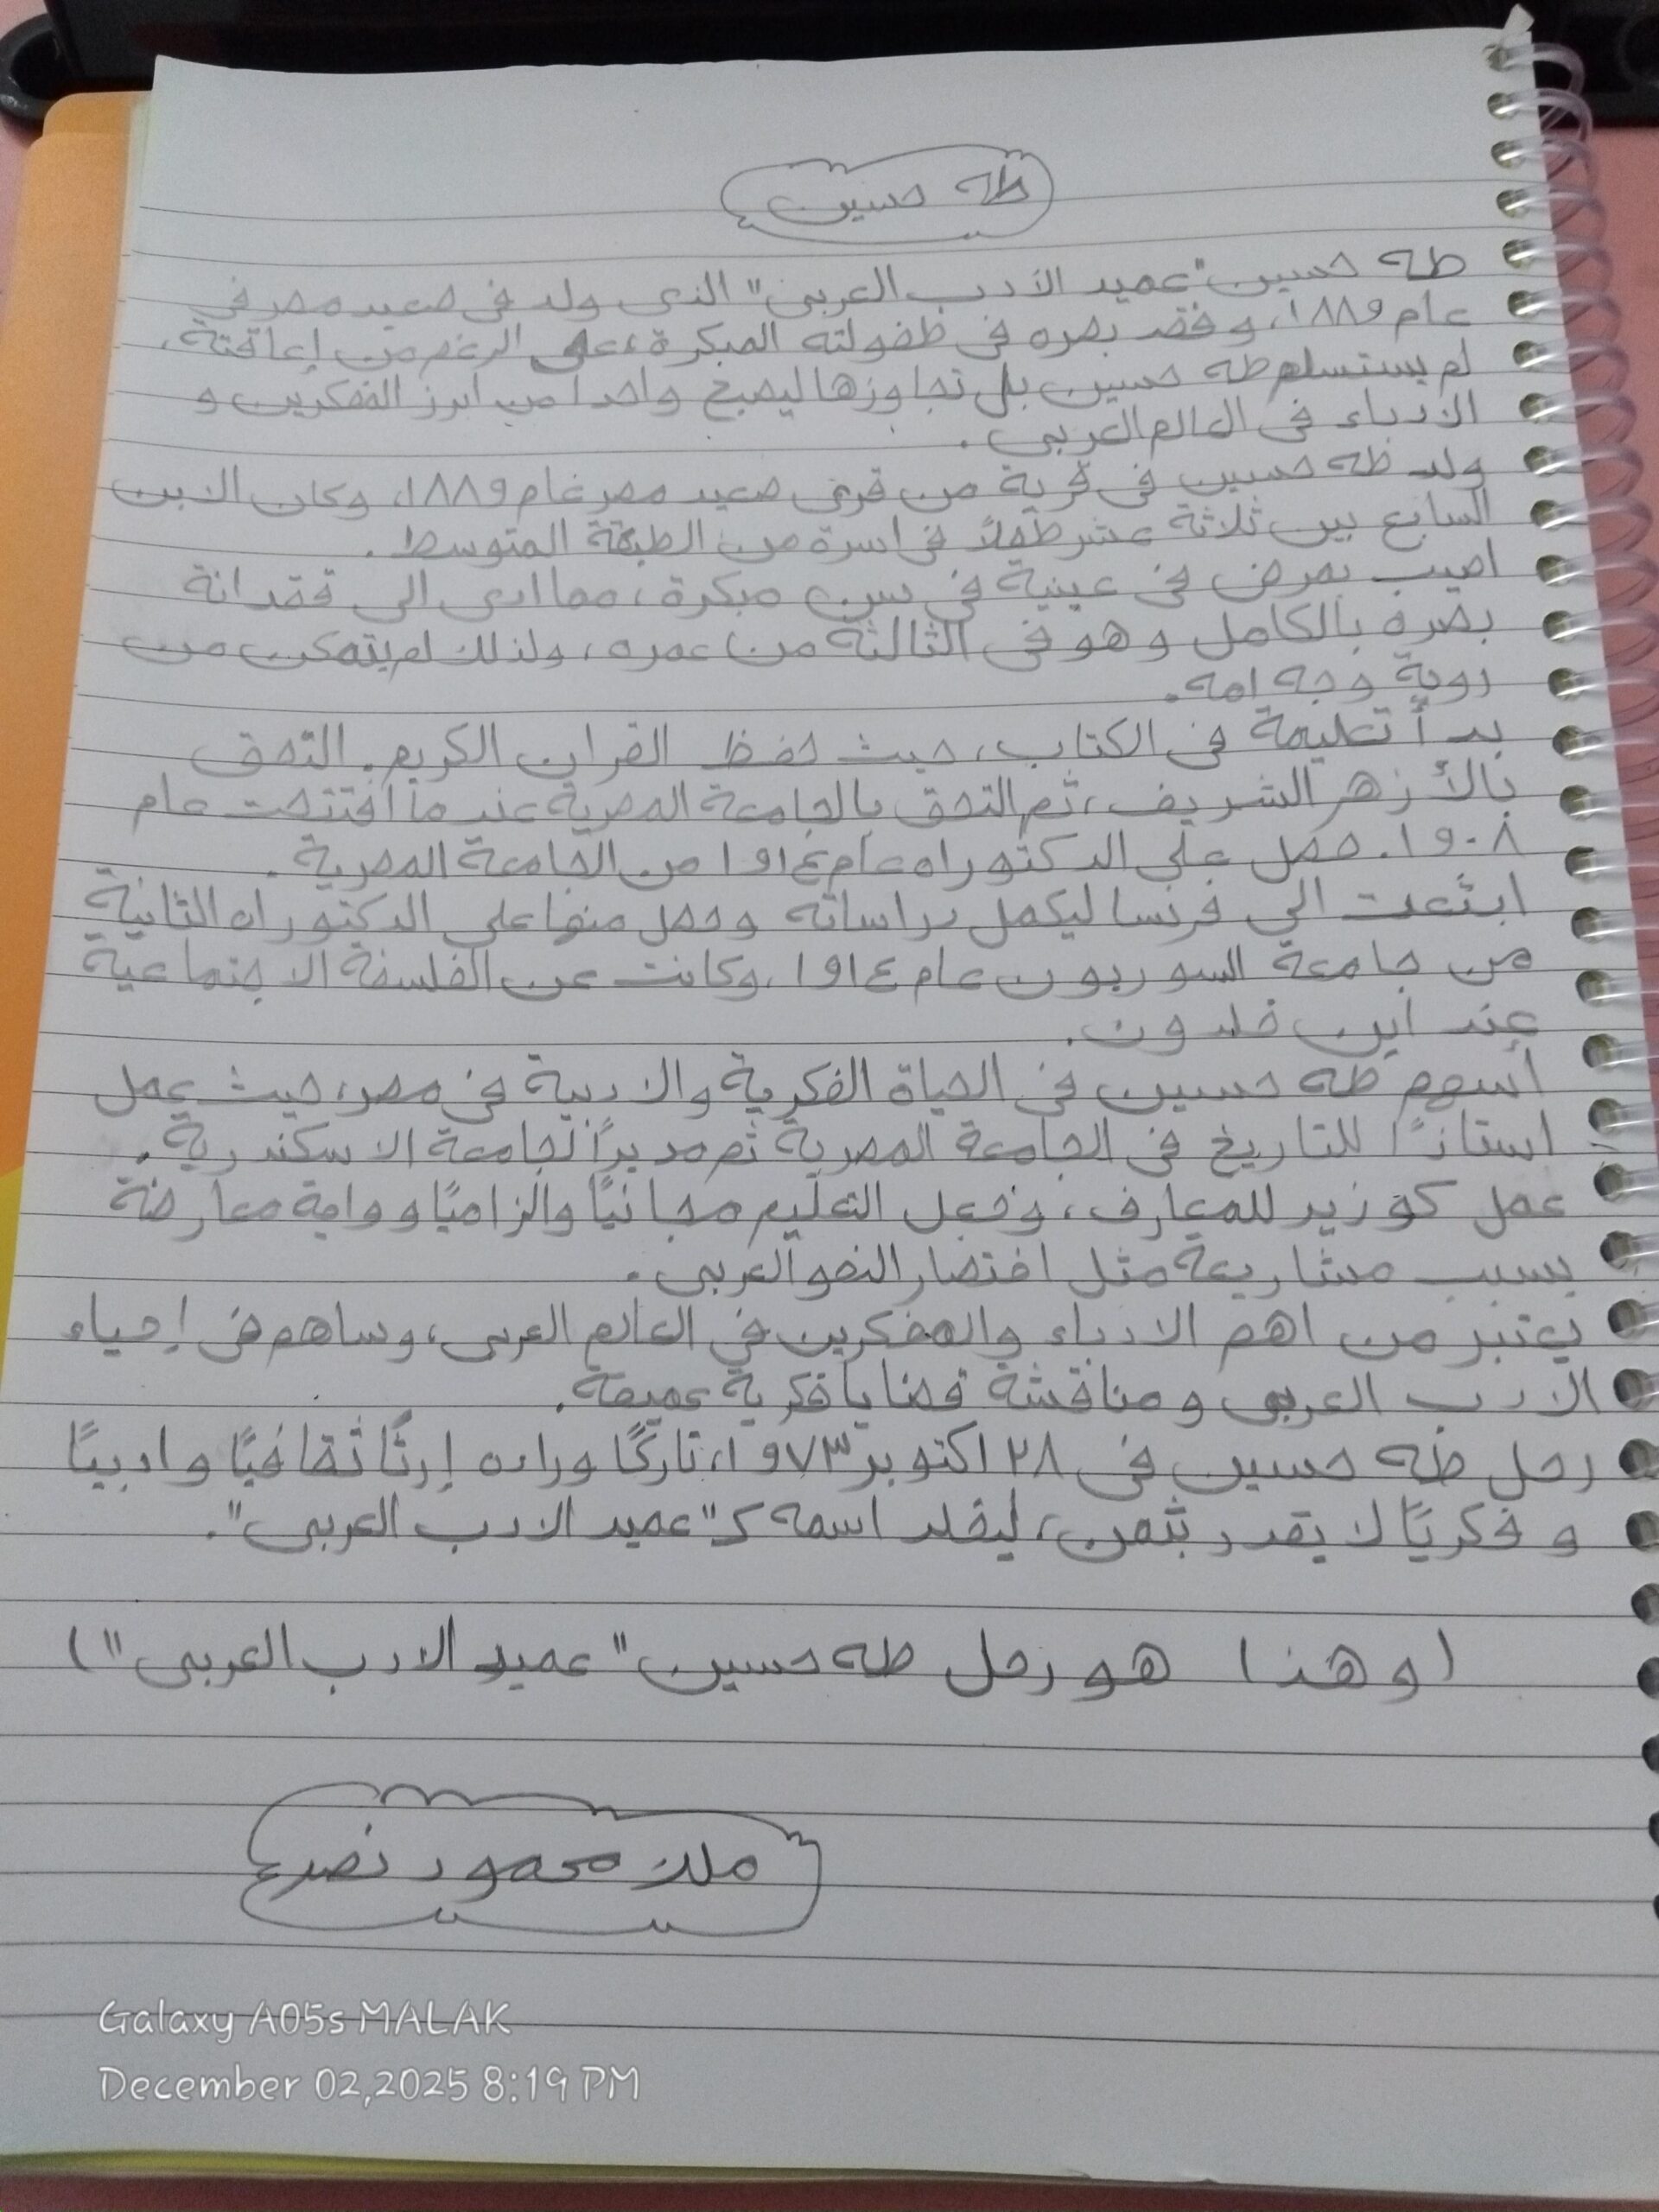 طه حسين
طه حسين "عميد الأدب العربى" الذى ولد فى صعيد مصر في
عام ١٨٨٩، و فقد بصره فى طفولته المبكرة، على الرغم من إعاقتة،
لم يستسلم طه حسين بل تجاوزها ليصبح واحدا من ابرز المفكرين و
الادباء فى العالم العربى.
ولد طه حسين فى قرية من قرى صعيد مصر عام ١٨٨٩، وكان الابن
السابع بين ثلاثة عشر طفلاً فى اسرة من الطبقة المتوسط.
اصيب بمرض فى عينية في سن مبكرة، مما ادى الى فقدانة
بصره بالكامل وهو فى الثالثة من عمره، ولذلك لم يتمكن من
روية وجه امه.
بدأ تعليمة فى الكتاب، حيث حفظ القران الكريم. التحق
بالأزهر الشريف، ثم التحق بالجامعة المصرية عند ما افتتحت عام
١٩٠٨. حصل على الدكتوراه عام ١٩١٤ من الجامعة المصرية.
ابتعث الى فرنسا ليكمل دراساته وحصل منها على الدكتوراه الثانية
من جامعة السوربون عام ١٩١٤، وكانت عن الفلسفة الاجتماعية
عند ابن خلدون.
أسهم طه حسين فى الحياة الفكرية والادبية فى مصر، حيث عمل
استاذًا للتاريخ فى الجامعة المصرية ثم مديرًا لجامعة الاسكندرية.
عمل كوزير للمعارف، وجعل التعليم مجانيًا والزاميًا وواجة معارضة
بسبب مشاريعة مثل اختصار النحو العربى.
يعتبر من اهم الادباء والمفكرين في العالم العربى، وساهم فى إحياء
الادب العربى ومناقشة قضايا فكرية عميقة.
رحل طه حسين فى ٢٨ اكتوبر ١٩٧٣، تاركًا وراءه إرثًا ثقافيًا وادبيًا
و فكريًا لا يقدر بثمن، ليخلد اسمه كـ "عميد الادب العربى".
(وهذا هو رحل طه حسين "عميد الادب العربى")
ملك محمود نصر
Galaxy A05s MALAK
December 02,2025 8:19 PM